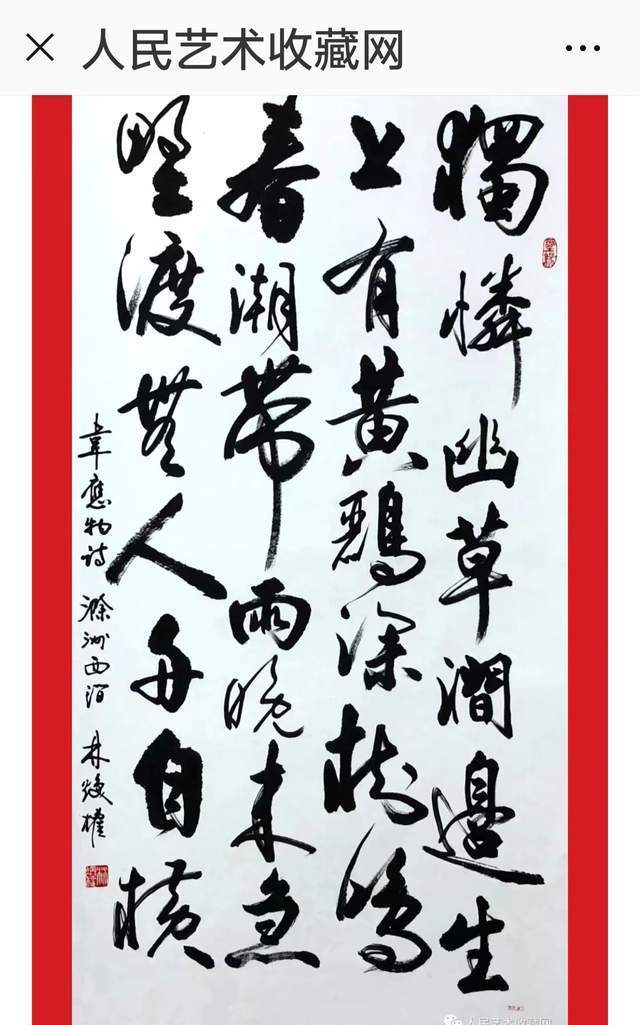 人民艺术收藏网
獨憐幽草澗邊生
上有黄鸝深樹鳴
春潮帶雨晚来急
野渡無人舟自横
韋應物诗 滁洲西涧 林
人民艺术收藏网